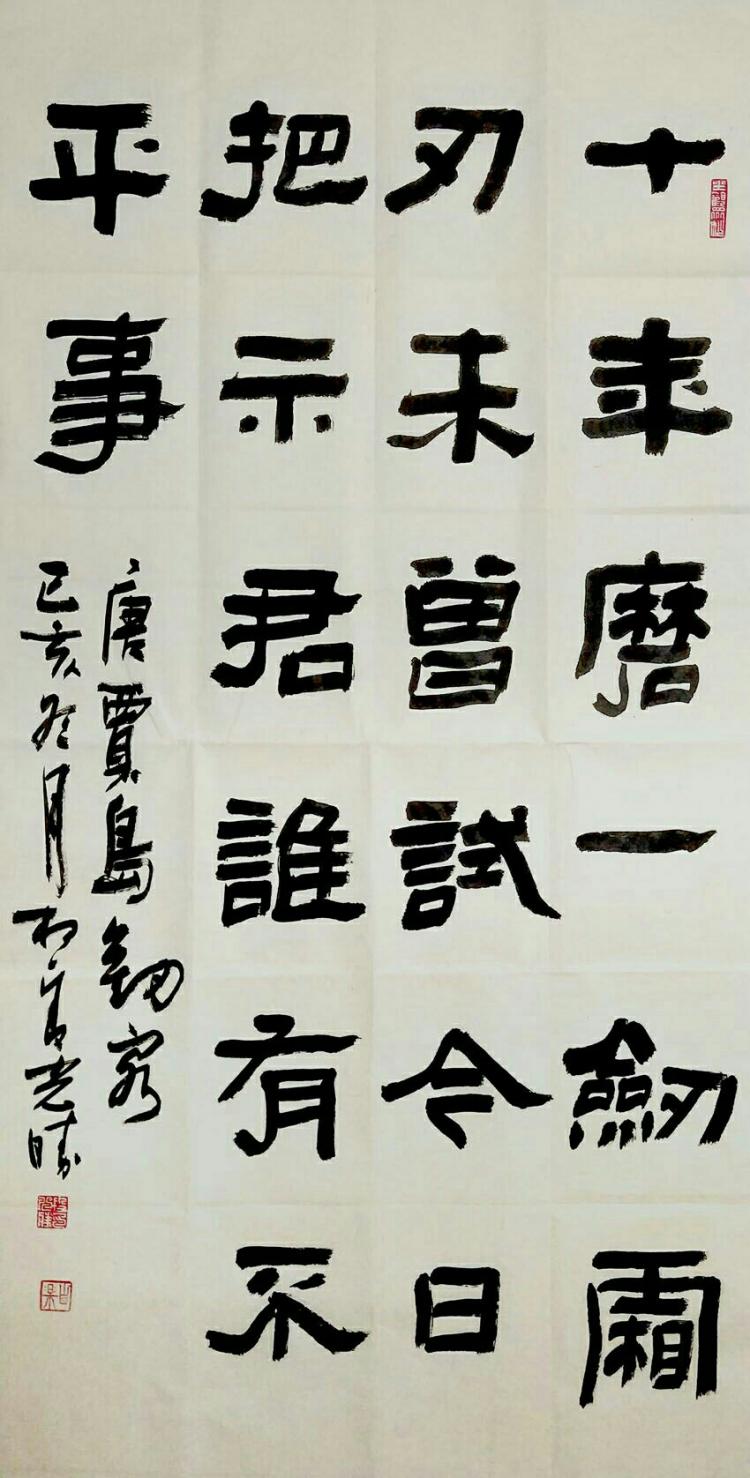 十年磨一劒霜
刃未曾試今日
把示君誰有不
平事
唐賈島釰客
己亥冬月